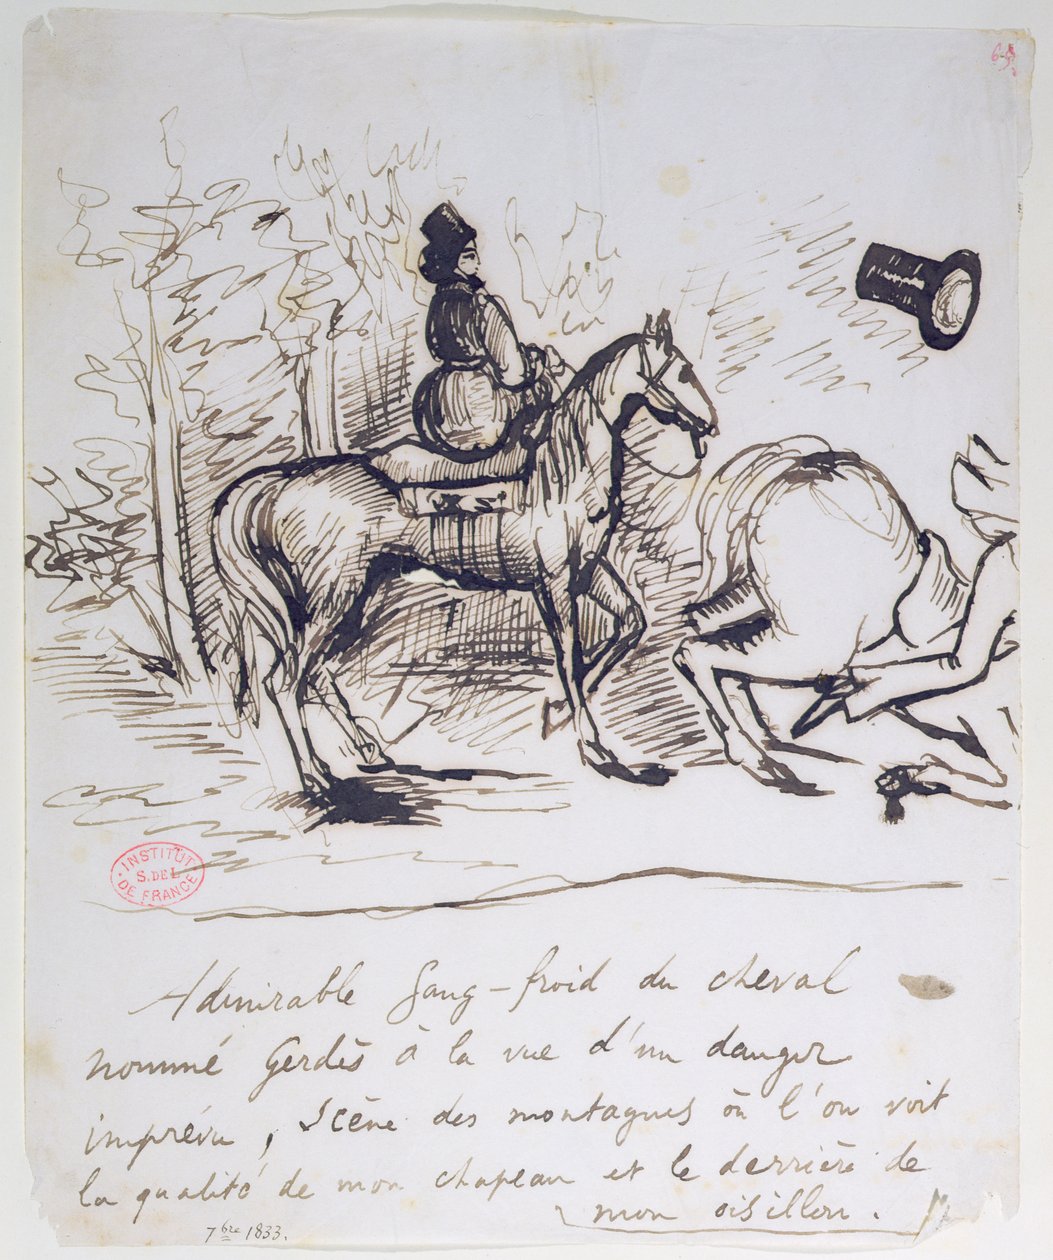 INSTITUT
S. DE L
DE FRANCE
Admirable Sang-froid du cheval
nommé Gerdès à la vue d'un danger
imprévu, Scène des montagnes où l'on voit
la qualité de mon chapeau et le derrière de
mon oisillon.
7bre 1833.